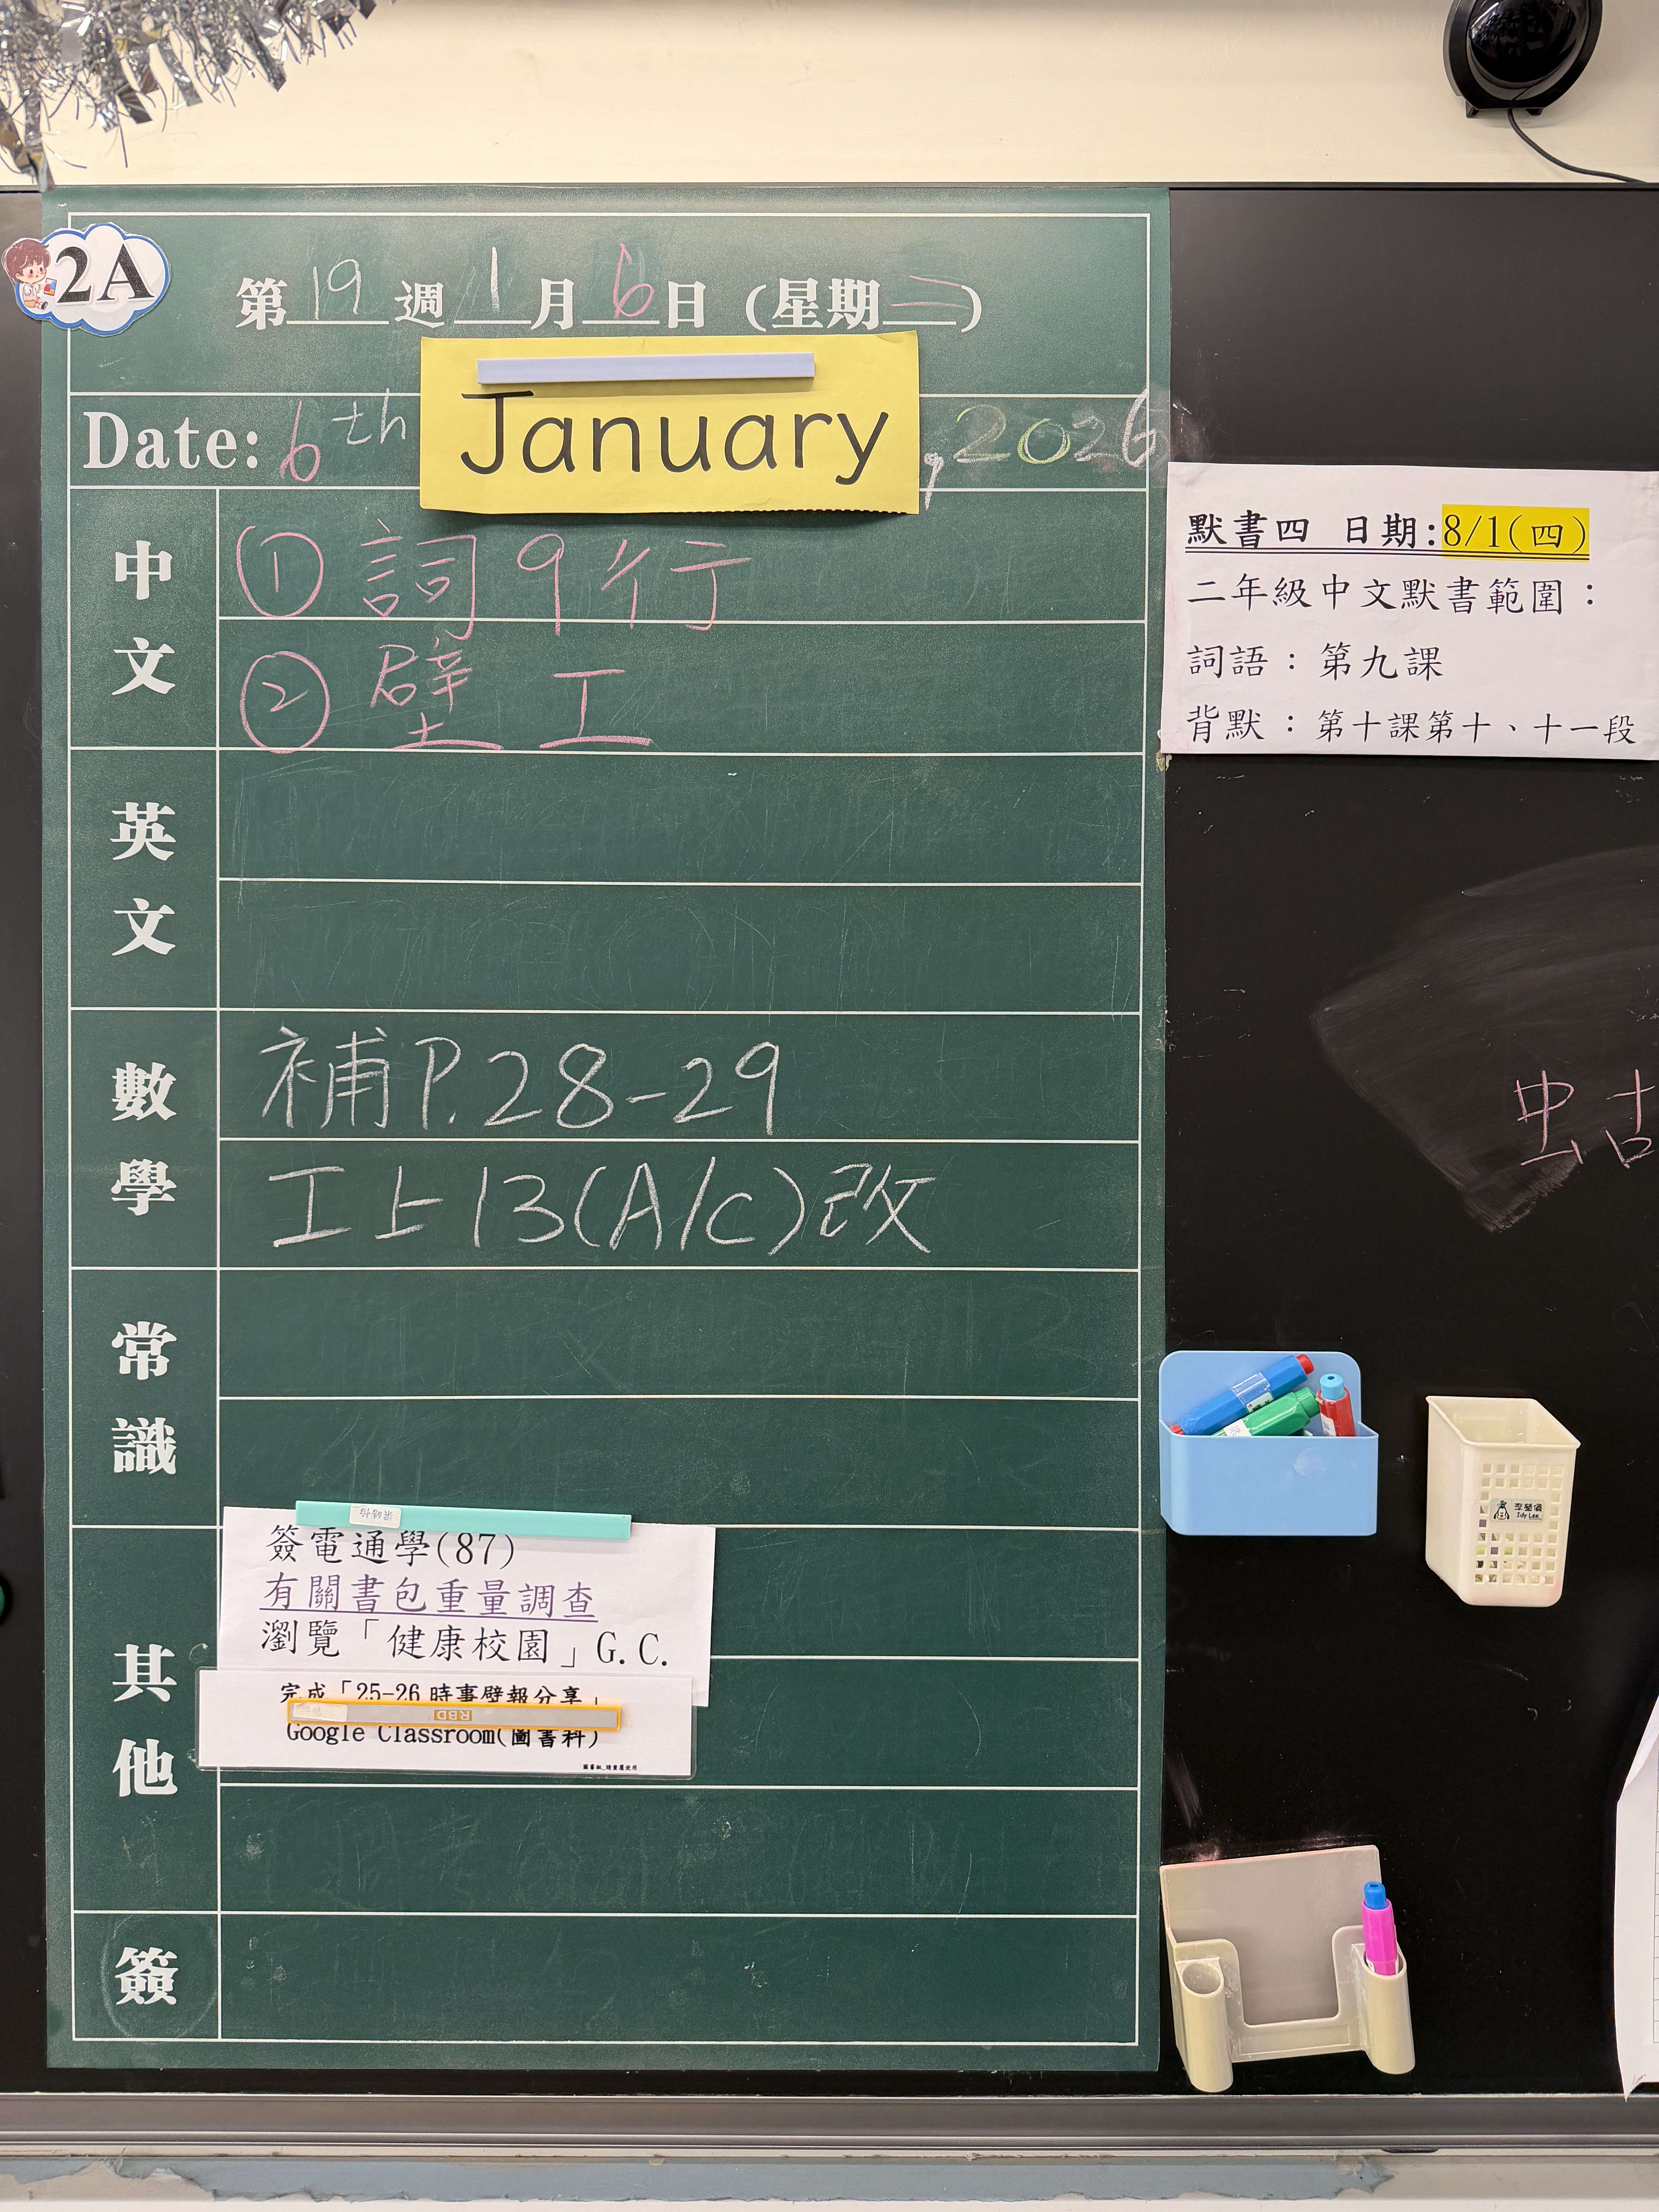 2A
第19週1月6日(星期二)
Date: 6th January, 2026
中文
① 詞9行
② 壁工
英文
數學
補P.28-29
工上13(A/c)改
常識
其他
簽電通學(87)
有關書包重量調查
瀏覽「健康校園」G.C.
完成「25-26 時事壁報分享」
RBD
Google Classroom(圖書科)
簽
默書四 日期:8/1(四)
二年級中文默書範圍：
詞語：第九課
背默：第十課第十、十一段
蛄
Idy Lee